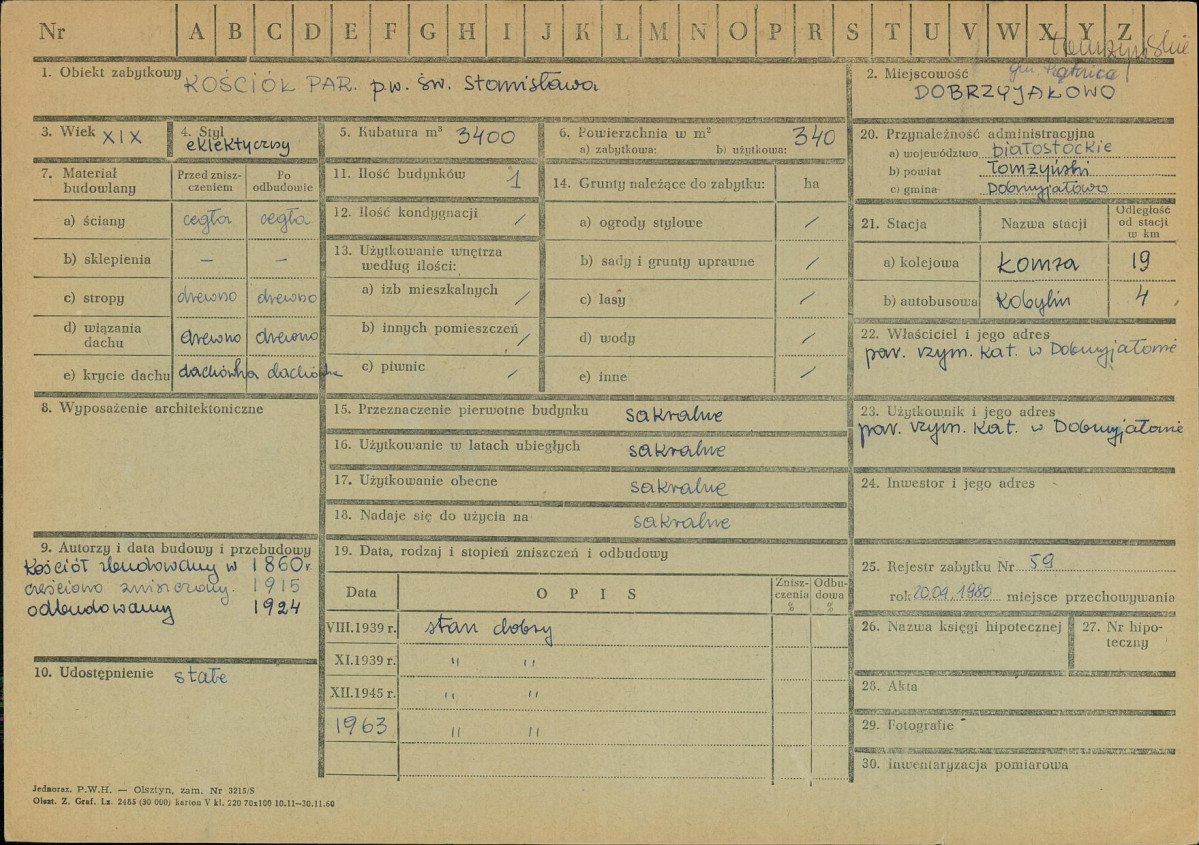 Nr A B C D E F G H I J K L M N O P R S T U V W X Y Z
Łomżyńskie
1. Obiekt zabytkowy KOŚCIÓŁ PAR. p.w. św. Stanisława
2. Miejscowość gm. Piątnica
DOBRZYJAŁOWO
3. Wiek XIX
4. Styl eklektyczny
5. Kubatura m³ 3400
6. Powierzchnia w m² 340
a) zabytkowa: b) użytkowa:
20. Przynależność administracyjna
a) województwo białostockie
b) powiat Łomżyński
c) gmina Dobrzyjałowo
7. Materiał budowlany
Przed zniszczeniem
Po odbudowie
a) ściany cegła cegła
b) sklepienia — —
c) stropy drewno drewno
d) wiązania dachu drewno drewno
e) krycie dachu dachówka dachówka
11. Ilość budynków 1
12. Ilość kondygnacji /
13. Użytkowanie wnętrza
według ilości:
a) izb mieszkalnych /
b) innych pomieszczeń /
c) piwnic /
14. Grunty należące do zabytku: ha
a) ogrody stylowe /
b) sady i grunty uprawne /
c) lasy /
d) wody /
e) inne /
21. Stacja Nazwa stacji Odległość od stacji w km
a) kolejowa Łomża 19
b) autobusowa Kobylin 4
22. Właściciel i jego adres
par. rzym. kat. w Dobrzyjałowie
8. Wyposażenie architektoniczne
15. Przeznaczenie pierwotne budynku sakralne
16. Użytkowanie w latach ubiegłych sakralne
17. Użytkowanie obecne sakralne
18. Nadaje się do użycia na sakralne
23. Użytkownik i jego adres
par. rzym. kat. w Dobrzyjałowie
24. Inwestor i jego adres
9. Autorzy i data budowy i przebudowy
Kościół zbudowany w 1860 r.
częściowo zniszczony. 1915
odbudowany 1924
10. Udostępnienie stałe
19. Data, rodzaj i stopień zniszczeń i odbudowy
Data OPIS Zniszczenia % Odbudowa %
VIII.1939 r. stan dobry
XI.1939 r. " "
XII.1945 r. " "
1963 " "
25. Rejestr zabytku Nr 59
rok 10.09.1980 miejsce przechowywania
26. Nazwa księgi hipotecznej
27. Nr hipoteczny
28. Akta
29. Fotografie
30. Inwentaryzacja pomiarowa
Jednoraz. P.W.H. — Olsztyn, zam. Nr 3215/S
Olszt. Z. Graf. Lz. 2485 (30 000) karton V kl. 220 70x100 10.11—30.11.60